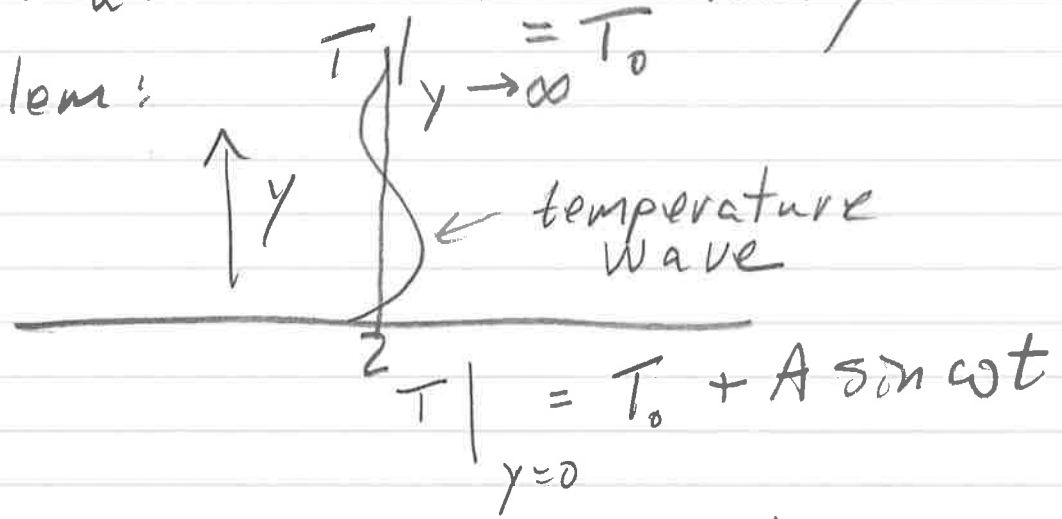 T| y→∞ = T₀
lem:
y
temperature
wave
2
T| y=0 = T₀ + A sin ωt